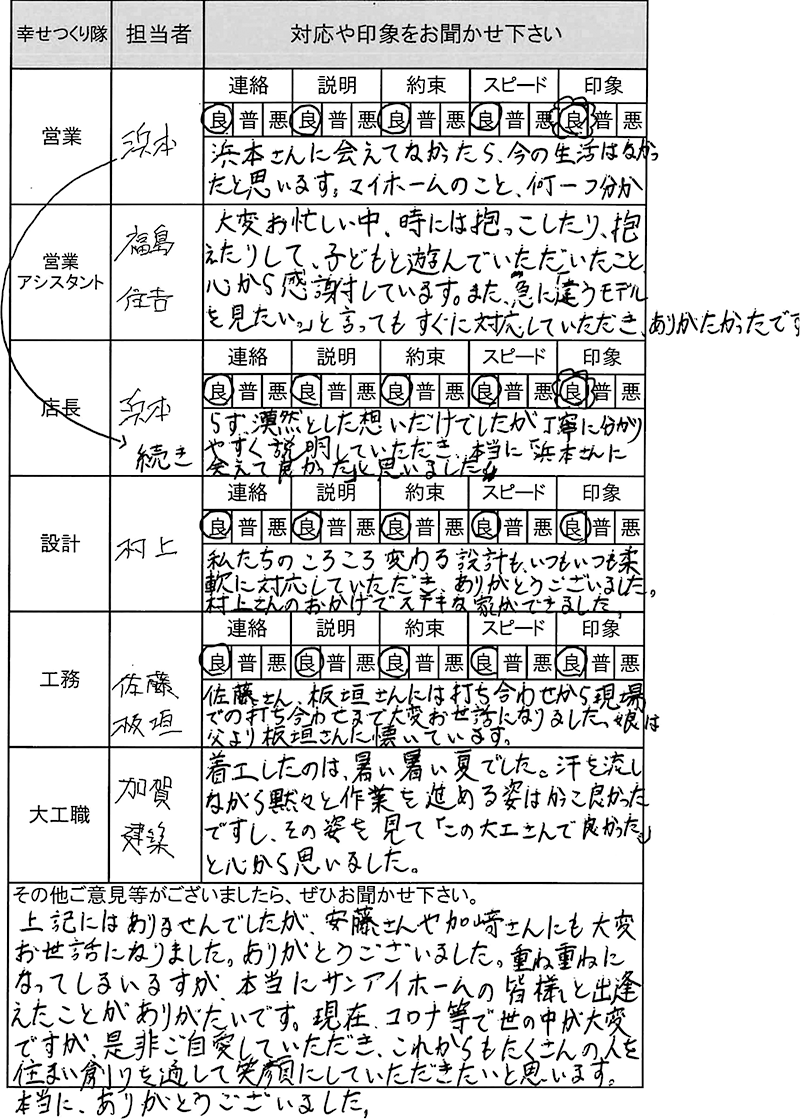 幸せつくり隊 担当者 対応や印象をお聞かせ下さい
営業 浜本
連絡 説明 約束 スピード 印象
良 普 悪 良 普 悪 良 普 悪 良 普 悪 良 普 悪
浜本さんに会えてなかったら、今の生活はなかっ
たと思います。マイホームのこと、何一つ分か
営業
アシスタント
福島
住吉
大変お忙しい中、時には抱っこしたり、抱
えたりして、子どもと遊んでいただいたこと、
心から感謝しています。また、急に「違うモデル
を見たい。」と言ってもすぐに対応していただき、ありがたかったです
店長 浜本
続き
連絡 説明 約束 スピード 印象
良 普 悪 良 普 悪 良 普 悪 良 普 悪 良 普 悪
らず、漠然とした想いだけでしたが丁寧に分かり
やすく説明していただき、本当に「浜本さんに
会えて良かった」と思いました。
設計 村上
連絡 説明 約束 スピード 印象
良 普 悪 良 普 悪 良 普 悪 良 普 悪 良 普 悪
私たちのころころ変わる設計も、いつもいつも柔
軟に対応していただき、ありがとうございました。
村上さんのおかげでステキな家ができました。
工務
佐藤
板垣
連絡 説明 約束 スピード 印象
良 普 悪 良 普 悪 良 普 悪 良 普 悪 良 普 悪
佐藤さん、板垣さんには打ち合わせから現場
での打ち合わせまで大変お世話になりました。娘は
父より板垣さんに懐いています。
大工職
加賀
建築
着工したのは、暑い暑い夏でした。汗を流し
ながら黙々と作業を進める姿はかっこ良かった
ですし、その姿を見て「この大工さんで良かった。」
と心から思いました。
その他ご意見等がございましたら、ぜひお聞かせ下さい。
上記にはありませんでしたが、安藤さんや加﨑さんにも大変
お世話になりました。ありがとうございました。重ね重ねに
なってしまいますが、本当にサンアイホームの皆様と出逢
えたことがありがたいです。現在、コロナ等で世の中が大変
ですが、是非ご自愛していただき、これからもたくさんの人を
住まい創りを通して笑顔にしていただきたいと思います。
本当に、ありがとうございました。